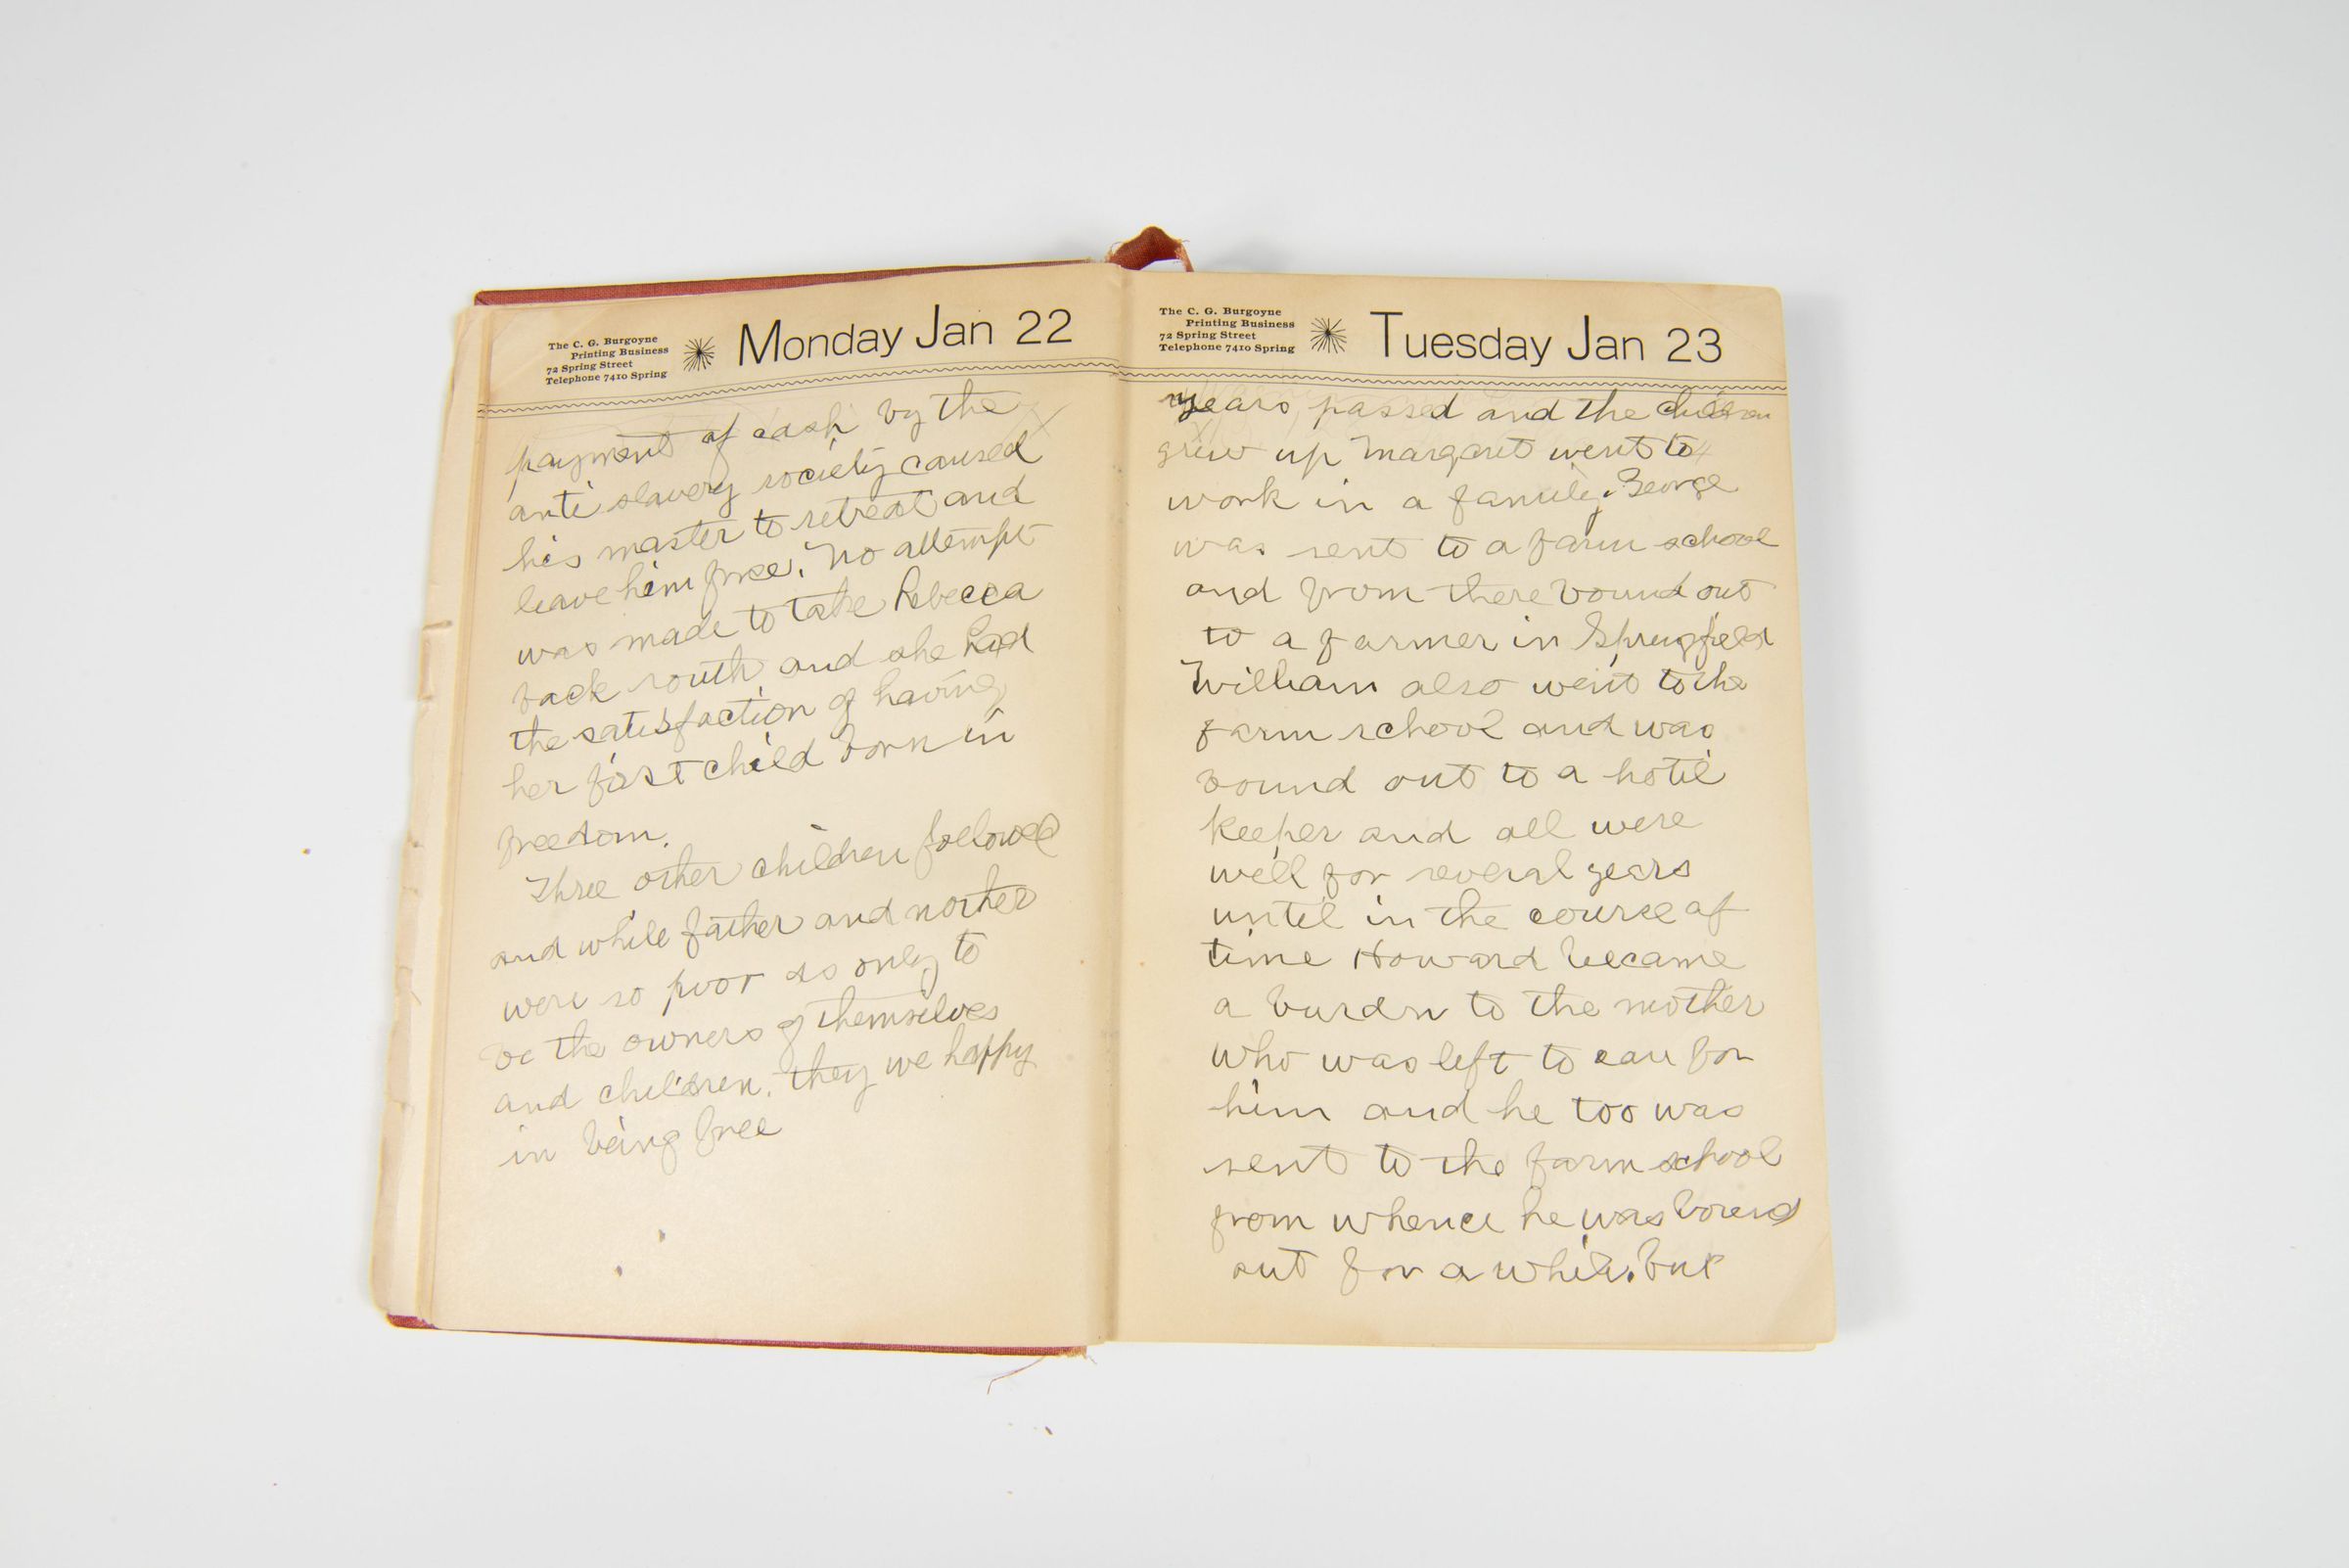 The C. G. Burgoyne
Printing Business
72 Spring Street
Telephone 7410 Spring
Monday Jan 22
payment of cash by the
anti slavery society caused
his master to retreat and
leave him free. No attempt
was made to take Rebecca
back south and she had
the satisfaction of having
her first child born in
freedom.
Three other children followed
and while father and mother
were so poor as only to
be the owners of themselves
and children. they we happy
in being free
The C. G. Burgoyne
Printing Business
72 Spring Street
Telephone 7410 Spring
Tuesday Jan 23
years passed and the children
grew up Margaret went to
work in a family. George
was sent to a farm school
and from there bound out
to a farmer in Springfield
William also went to the
farm school and was
bound out to a hotel
keeper and all were
well for several years
until in the course of
time Howard became
a burdn to the mother
who was left to care for
him and he too was
sent to the farm school
from whence he was bound
out for a while. but